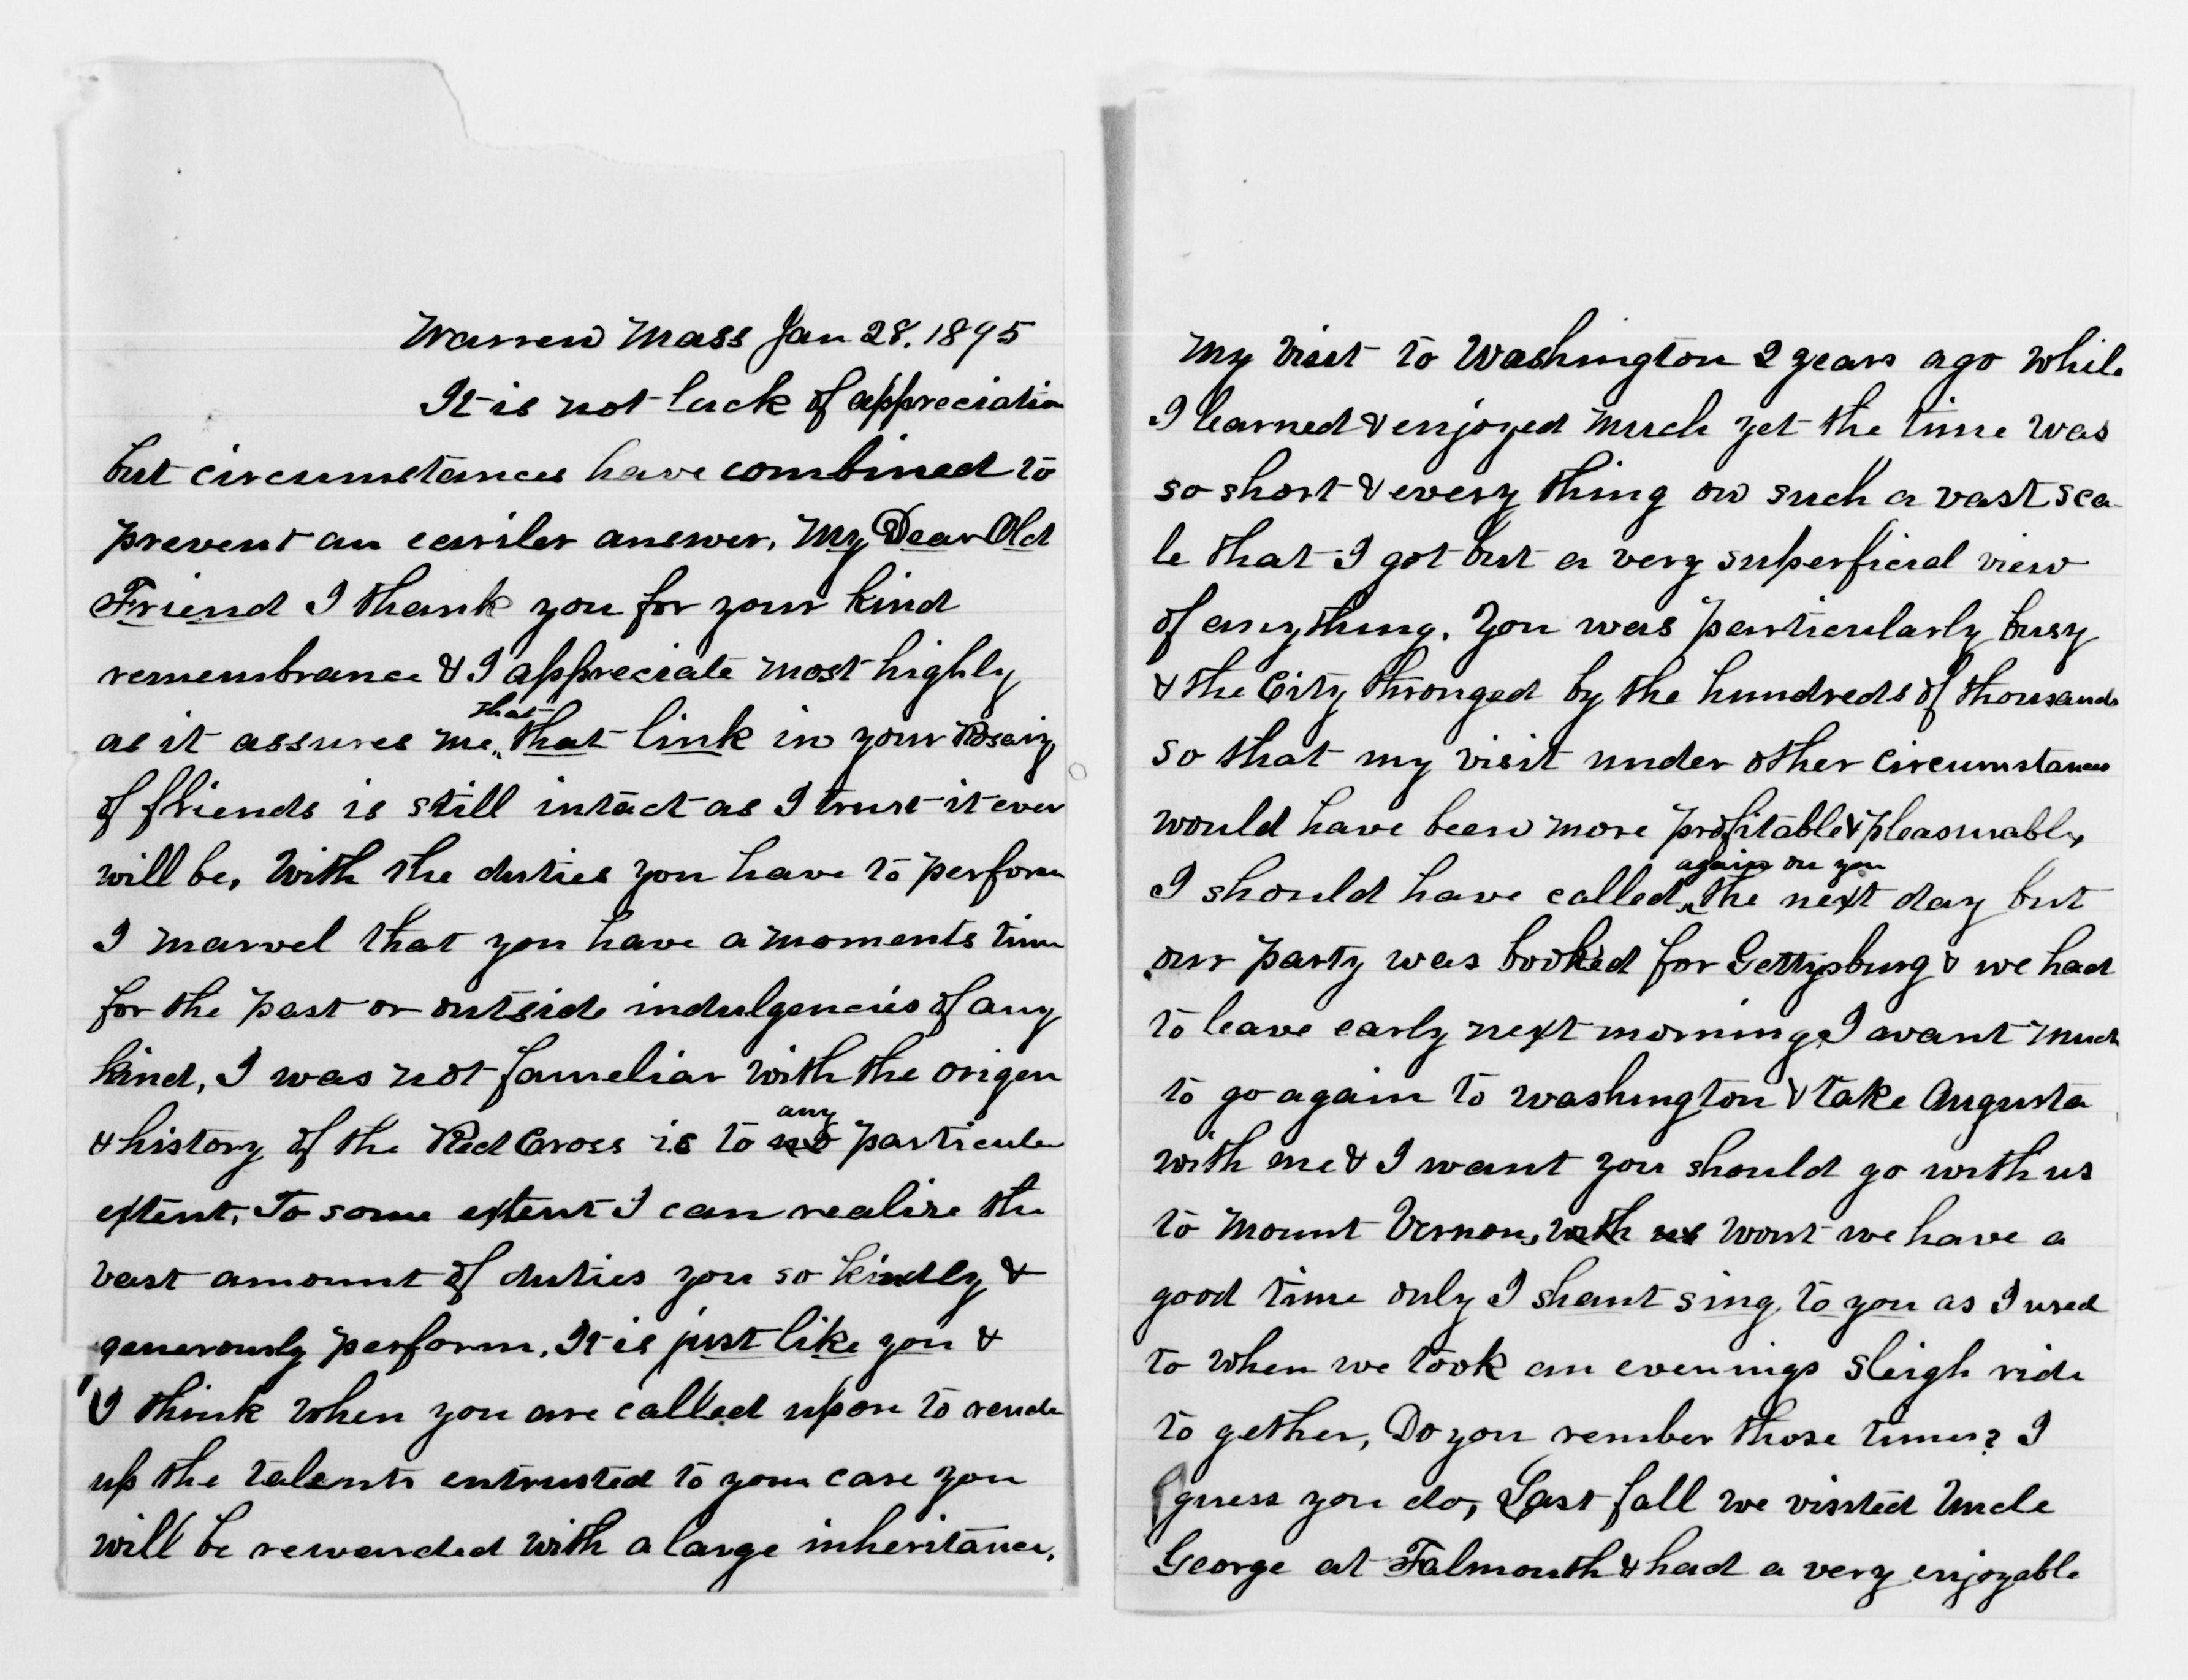 Warren Mass Jan 28. 1895
It is not lack of appreciation
but circumstances have combined to
prevent an earriler answer. My Dear Old
Friend I thank you for your kind
remembrance & I appreciate most highly
as it assures me that that link in your Rosary
of friends is still intact as I trust it ever
will be. With the duties you have to perform
I marvel that you have a moments time
for the past or outside indulgencies of any
kind, I was not fameliar with the origen
& history of the Red Cross is to no any particular
extent. To some extent I can realize the
vast amount of duties you so kindly &
generously perform. It is just like you &
I think when you are called upon to render
up the talents entrusted to your care you
will be rewarded with a large inheritance.
My visit to Washington 2 years ago while
I learned & enjoyed much yet the time was
so short & every thing on such a vast sca
le that I got but a very superficial view
of anything. You was particularly busy
& the City thronged by the hundreds of thousands
so that my visit under other circumstances
would have been more profitable & pleasurable,
I should have called again on you the next day but
our party was booked for Gettysburg & we had
to leave early next morning. I want much
to go again to Washington & take Augusta
with me & I want you should go with us
to Mount Vernon, with us wont we have a
good time only I shant sing to you as I used
to when we took an evenings sleigh ride
to gether, Do you rember those times? I
guess you do, Last fall we visited Uncle
George at Falmouth & had a very enjoyable